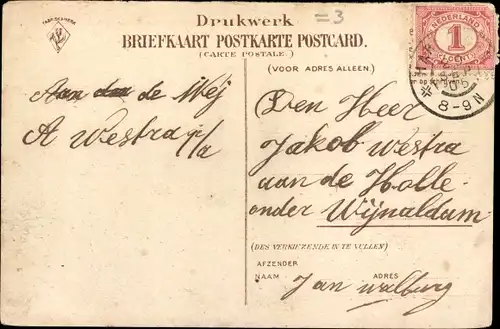 FABRIEKSMERK
Drukwerk
=3
BRIEFKAART POSTKARTE POSTCARD.
(CARTE POSTALE.)
(VOOR ADRES ALLEEN.)
NEDERLAND
1
CENT
8-9N
Aan den de Weij
A Westra p/a
Den Heer
Jakob Westra
aan de Holle
onder Wijnaldum
(DES VERKIEZENDE IN TE VULLEN)
AFZENDER
NAAM
ADRES
Jan walburg